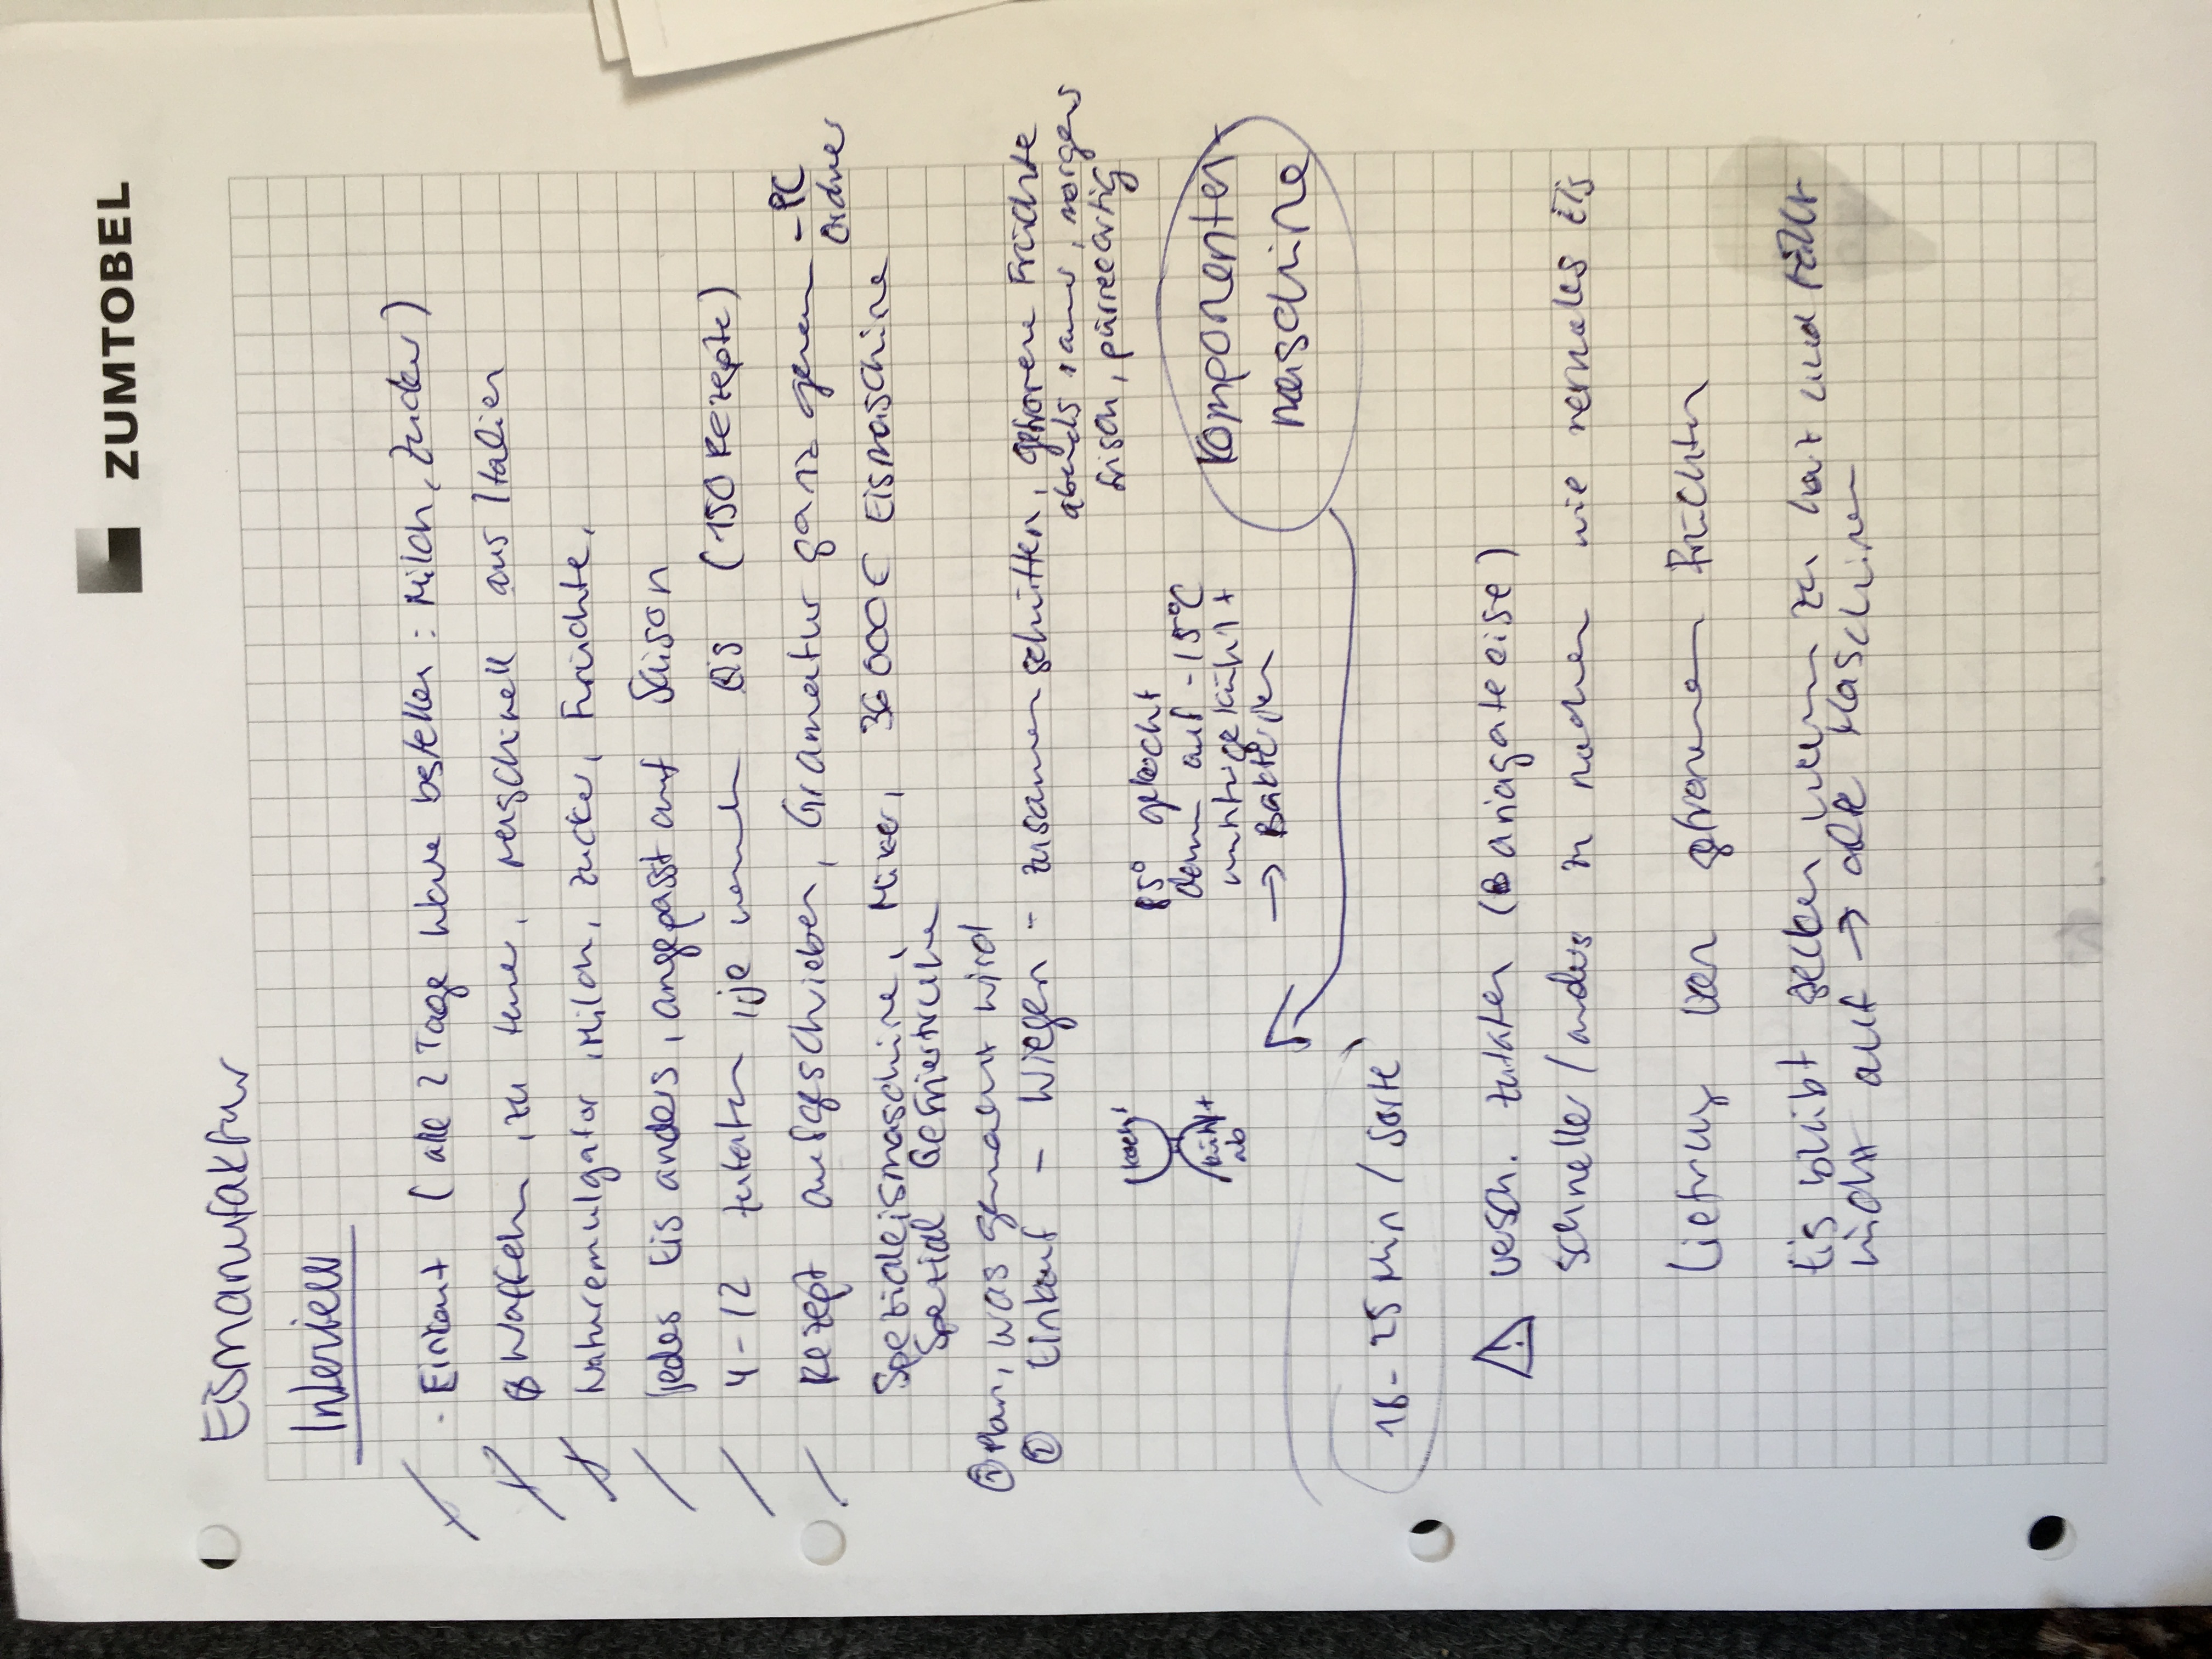 ZUMTOBEL
Eismanufaktur
Interview
- Einkauf (alle 2 Tage Ware bestellen : Milch, Zucker)
Waffeln, zu teuer, maschinell aus Italien
Naturemulgator, Milch, Zucker, Früchte,
jedes Eis anders, angepasst auf Saison
4-12 Zutaten, je nach Eis (150 Rezepte)
Rezept aufgeschrieben, Gramatur ganz genau - PC
Ordner
Spezialeismaschine, Mixer, 36000€ Eismaschine
Spezial Gefriertruhe
① Plan, was gemacht wird
② Einkauf - Wiegen - zusammenschütten, gefrorene Früchte
abends raus, morgens
frisch, pürreeartig
kocht
kühlt
ab
85° gekocht
dann auf -15°C
runtergekühlt
→ Bakterien
Komponenten-
maschine
18-25 Min / Sorte
⚠ versch. Zutaten
schneller / anders zu machen wie normales Eis
Liefrung von gefrorenen Früchten
Eis bleibt stecken wenn zu hart und fällt
nicht auf → alte Maschinen